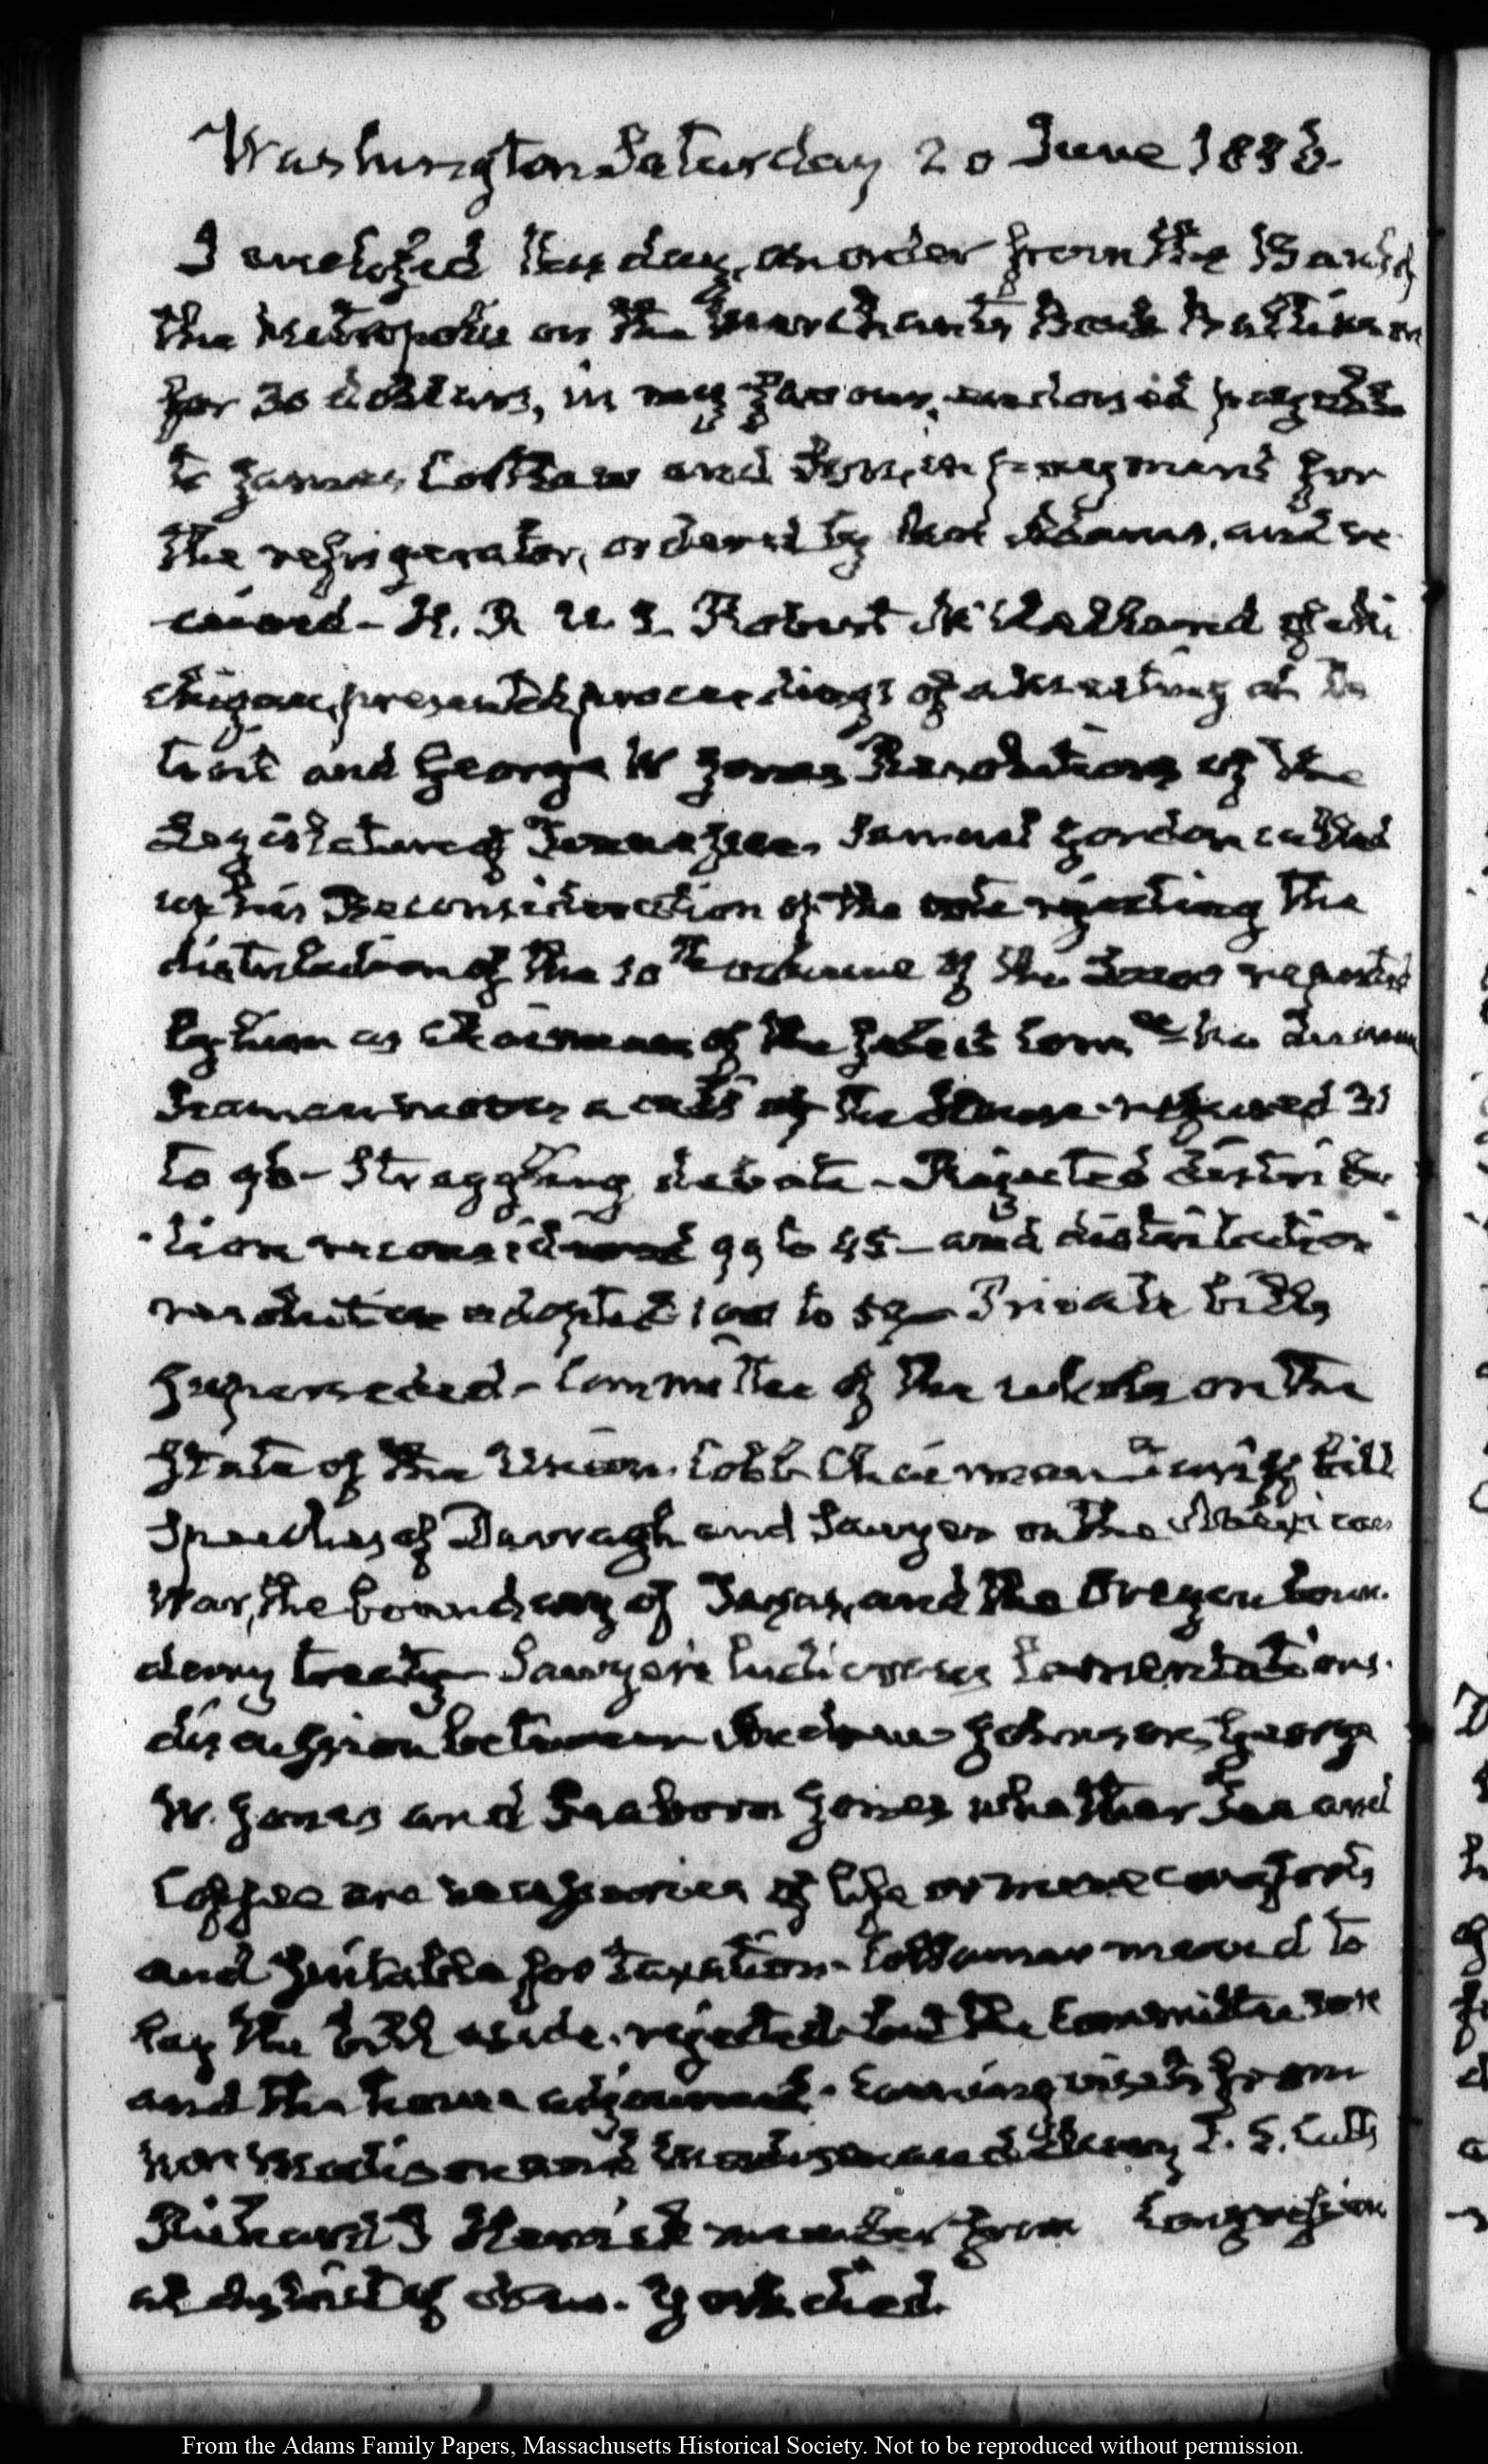 Washington Saturday 20 June 1846.
I inclosed this day, an order from the Bank of
the Metropolis on the Merchants Bank Baltimore
for 30 dollars, in my favour, endorsed payable
to James and Son, in payment for
the refrigerator, ordered by Mrs Adams, and re
ceived - H. R. U. S. Robert McClelland of Mi
chigan, presented proceedings of a Meeting at De
troit and George W Jones Resolutions of the
Legislature of Tennessee. Samuel Gordon called
up his Reconsideration of the vote rejecting the
distribution of the 10th volume of the Laws reported
by him as Chairman of the Com.ee
moves a call of the House refused 31
to 96 - Straggling debate - Rejected distribu
tion reconsidered 99 to 45 - and distribution
resolution adopted 100 to 59 - Private bills
superseded - Committee of the whole on the
State of the Union. Cobb Chairman Tariff bill
Speeches of Darragh and Sawyer on the Mexican
War, the boundary of Texas, and the Oregon boun.
dary treaty Sawyer's ludicrous lamentations.
discussion between Andrew Johnson, George
W. Jones and Seaborn Jones whether Tea and
Coffee are necessaries of life or mere comforts
and suitable for taxation - Collamer moved to
lay the bill aside. rejected but the Committee rose
and the house adjourned. Evening visits from
Mrs Madison and T. S. Cutts
Richard P Herrick member from Congression
al district of New-York died.
From the Adams Family Papers, Massachusetts Historical Society. Not to be reproduced without permission.